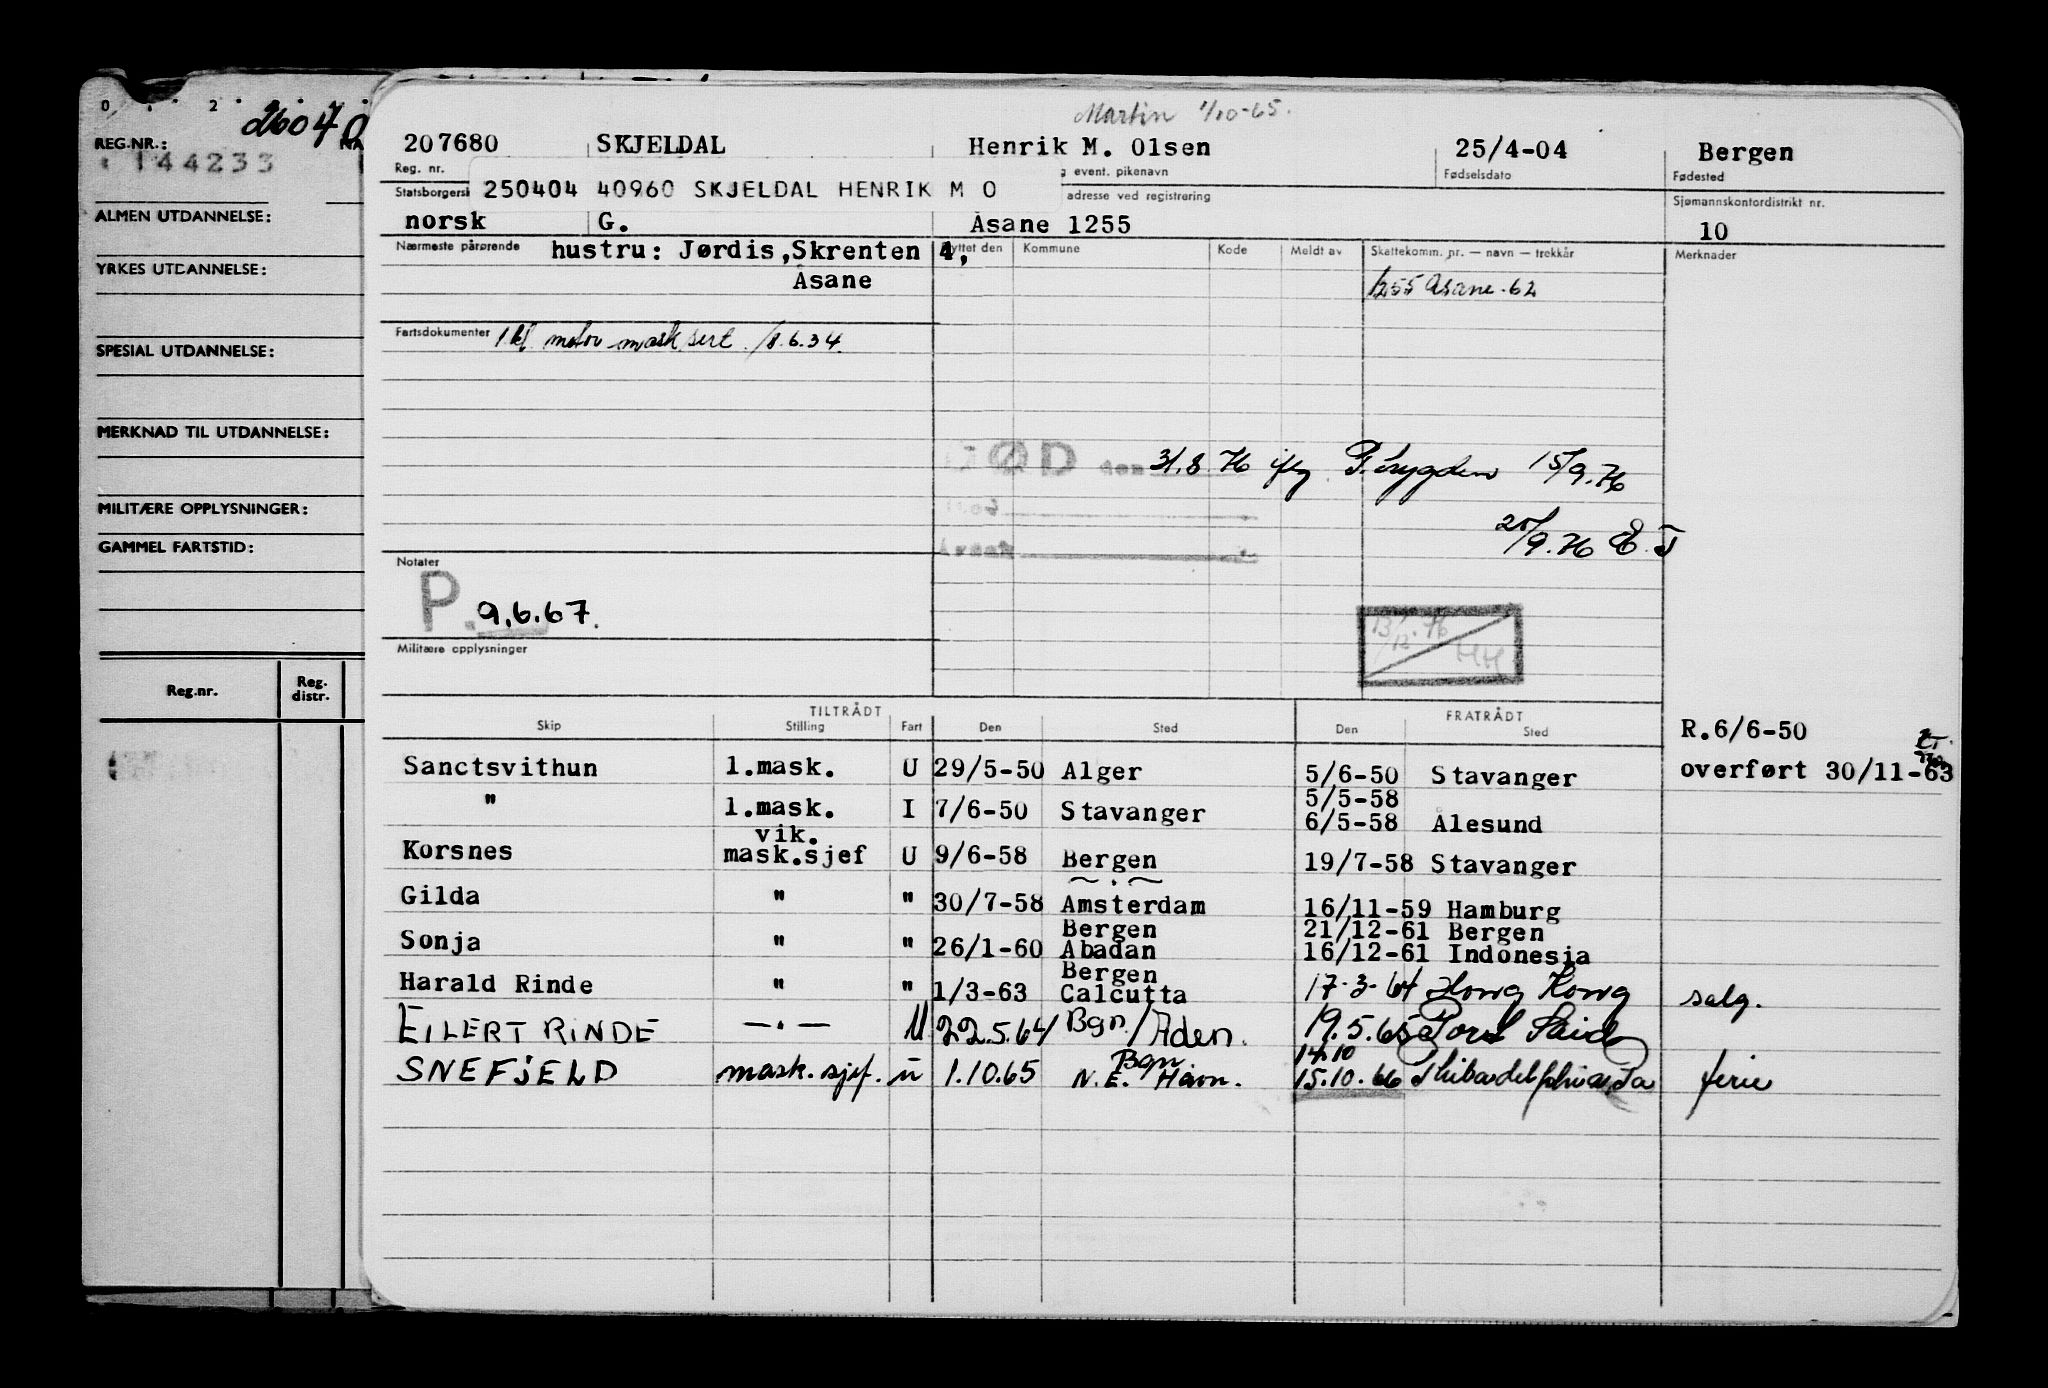 0 1 2
26040
REG.NR.:
144233
ALMEN UTDANNELSE:
YRKES UTDANNELSE:
SPESIAL UTDANNELSE:
MERKNAD TIL UTDANNELSE:
MILITÆRE OPPLYSNINGER:
GAMMEL FARTSTID:
Reg.nr. Reg. distr.
Martin 1/10-65.
207680 SKJELDAL Henrik M. Olsen 25/4-04 Bergen
Reg. nr. event. pikenavn Fødselsdato Fødested
Statsborgersk 250404 40960 SKJELDAL HENRIK M O adresse ved registrering Sjømannskontordistrikt nr.
norsk G. Åsane 1255 10
Nærmeste pårørende hustru: Jørdis, Skrenten 4, yttet den Kommune Kode Meldt av Skattekomm. nr. — navn — trekkår Merknader
Åsane 1255 Åsane. 62
Fartsdokumenter 1 kl. motor mask. sert. /8.6.34.
DØD den 31.8 76 iflg. F. trygden 15/9.76
sted
20/9.76 E.T
Årsak
Notater
P. 9.6.67.
13/12.76 HH
Militære opplysninger
TILTRÅDT FRATRÅDT
Skip Stilling Fart Den Sted Den Sted
R.6/6-50
Sanctsvithun 1.mask. U 29/5-50 Alger 5/6-50 Stavanger overført 30/11-63
" 1.mask. I 7/6-50 Stavanger 5/5-58 6/5-58 Ålesund
Korsnes vik. mask.sjef U 9/6-58 Bergen 19/7-58 Stavanger
Gilda " " 30/7-58 Amsterdam 16/11-59 Hamburg
Sonja " " 26/1-60 Bergen Abadan 21/12-61 Bergen 16/12-61 Indonesia
Harald Rinde " " 1/3-63 Bergen Calcutta 17-3-64 Hong Kong salg.
EILERT RINDE —"— U 22.5.64 Bgn./Aden. 19.5.65 Port Said
SNEFJELD mask. sjef. u 1.10.65 Bgn N.E. Havn. 14.10 15.10.66 Philadelphia, Pa ferie